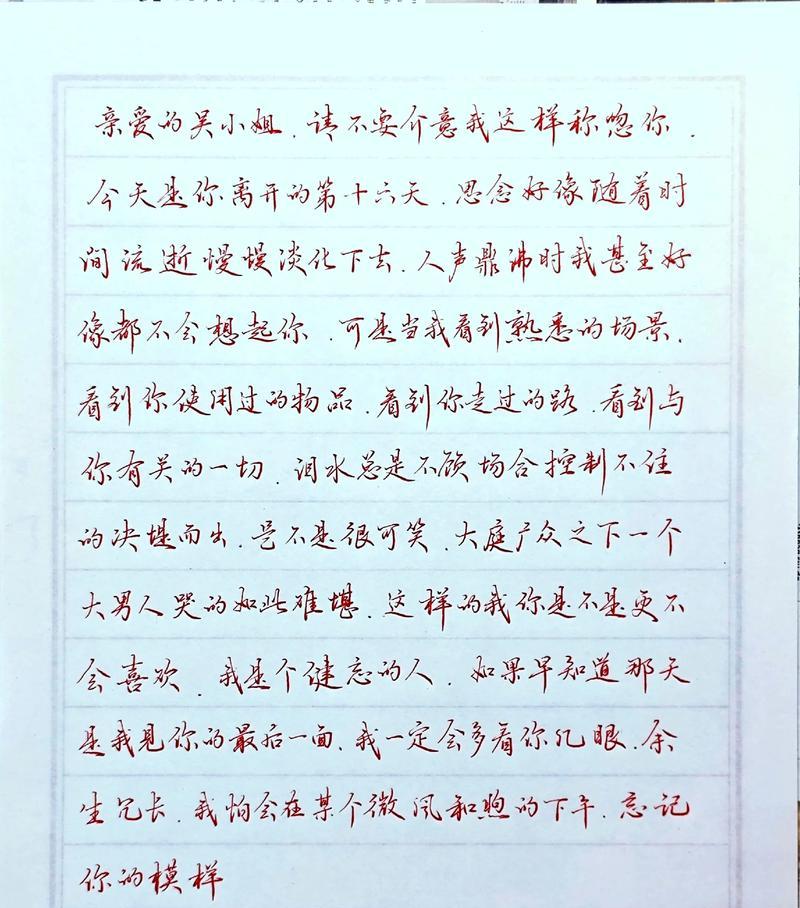 亲爱的吴小姐.请不要介意我这样称唿你.
今天是你离开的第十六天.思念好像随着时
间流逝慢慢淡化下去.人声鼎沸时我甚至好
像都不会想起你.可是当我看到熟悉的场景.
看到你使用过的物品.看到你走过的路.看到与
你有关的一切.泪水总是不顾场合控制不住
的决堤而出.是不是很可笑.大庭广众之下一个
大男人哭的如此难堪.这样的我你是不是更不
会喜欢.我是个健忘的人.如果早知道那天
是我见你的最后一面.我一定会多看你几眼.余
生冗长.我怕会在某个微风和煦的下午.忘记
你的模样